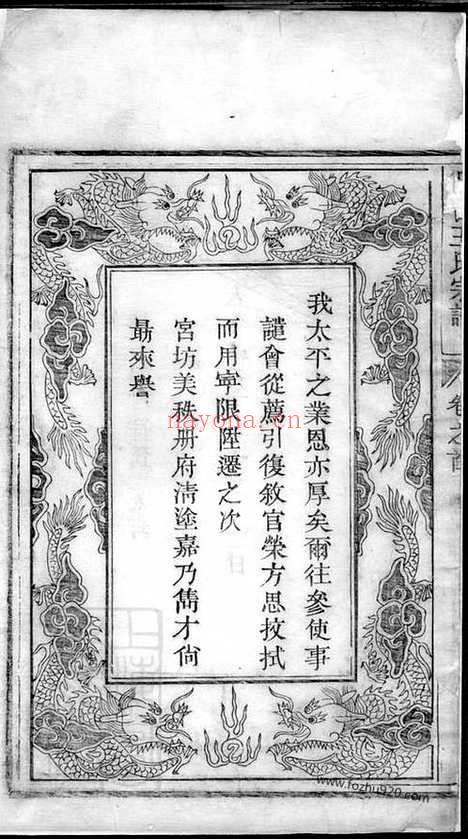 我太平之業恩亦厚矣爾往參使事
譴會從薦引復敘官榮方思抆拭
而用寧限陞遷之次
宮坊美秩册府淸塗嘉乃雋才尙
勗來譽
王氏宗譜
卷之首
nayona.cn
www.fozhu920.com